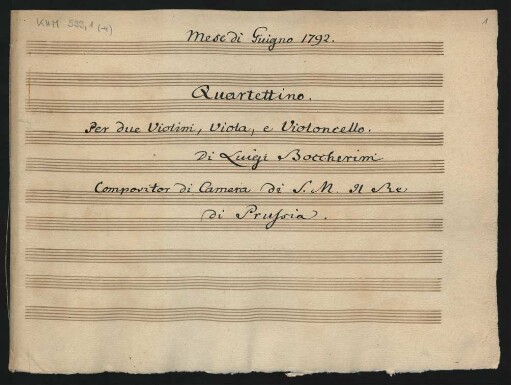 KHM 599,1 (-4)
1
Mese di Guigno 1792.
Quartettino.
Per due Violini, Viola, e Violoncello.
Di Luigi Boccherini
Compositor di Camera di S. M. Il Re
di Prussia.